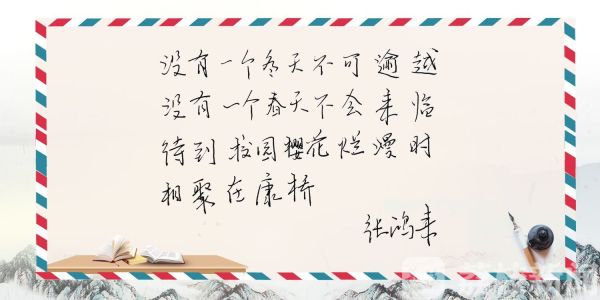 没有一个冬天不可逾越
没有一个春天不会来临
待到校园樱花烂漫时
相聚在康桥
张鸿来